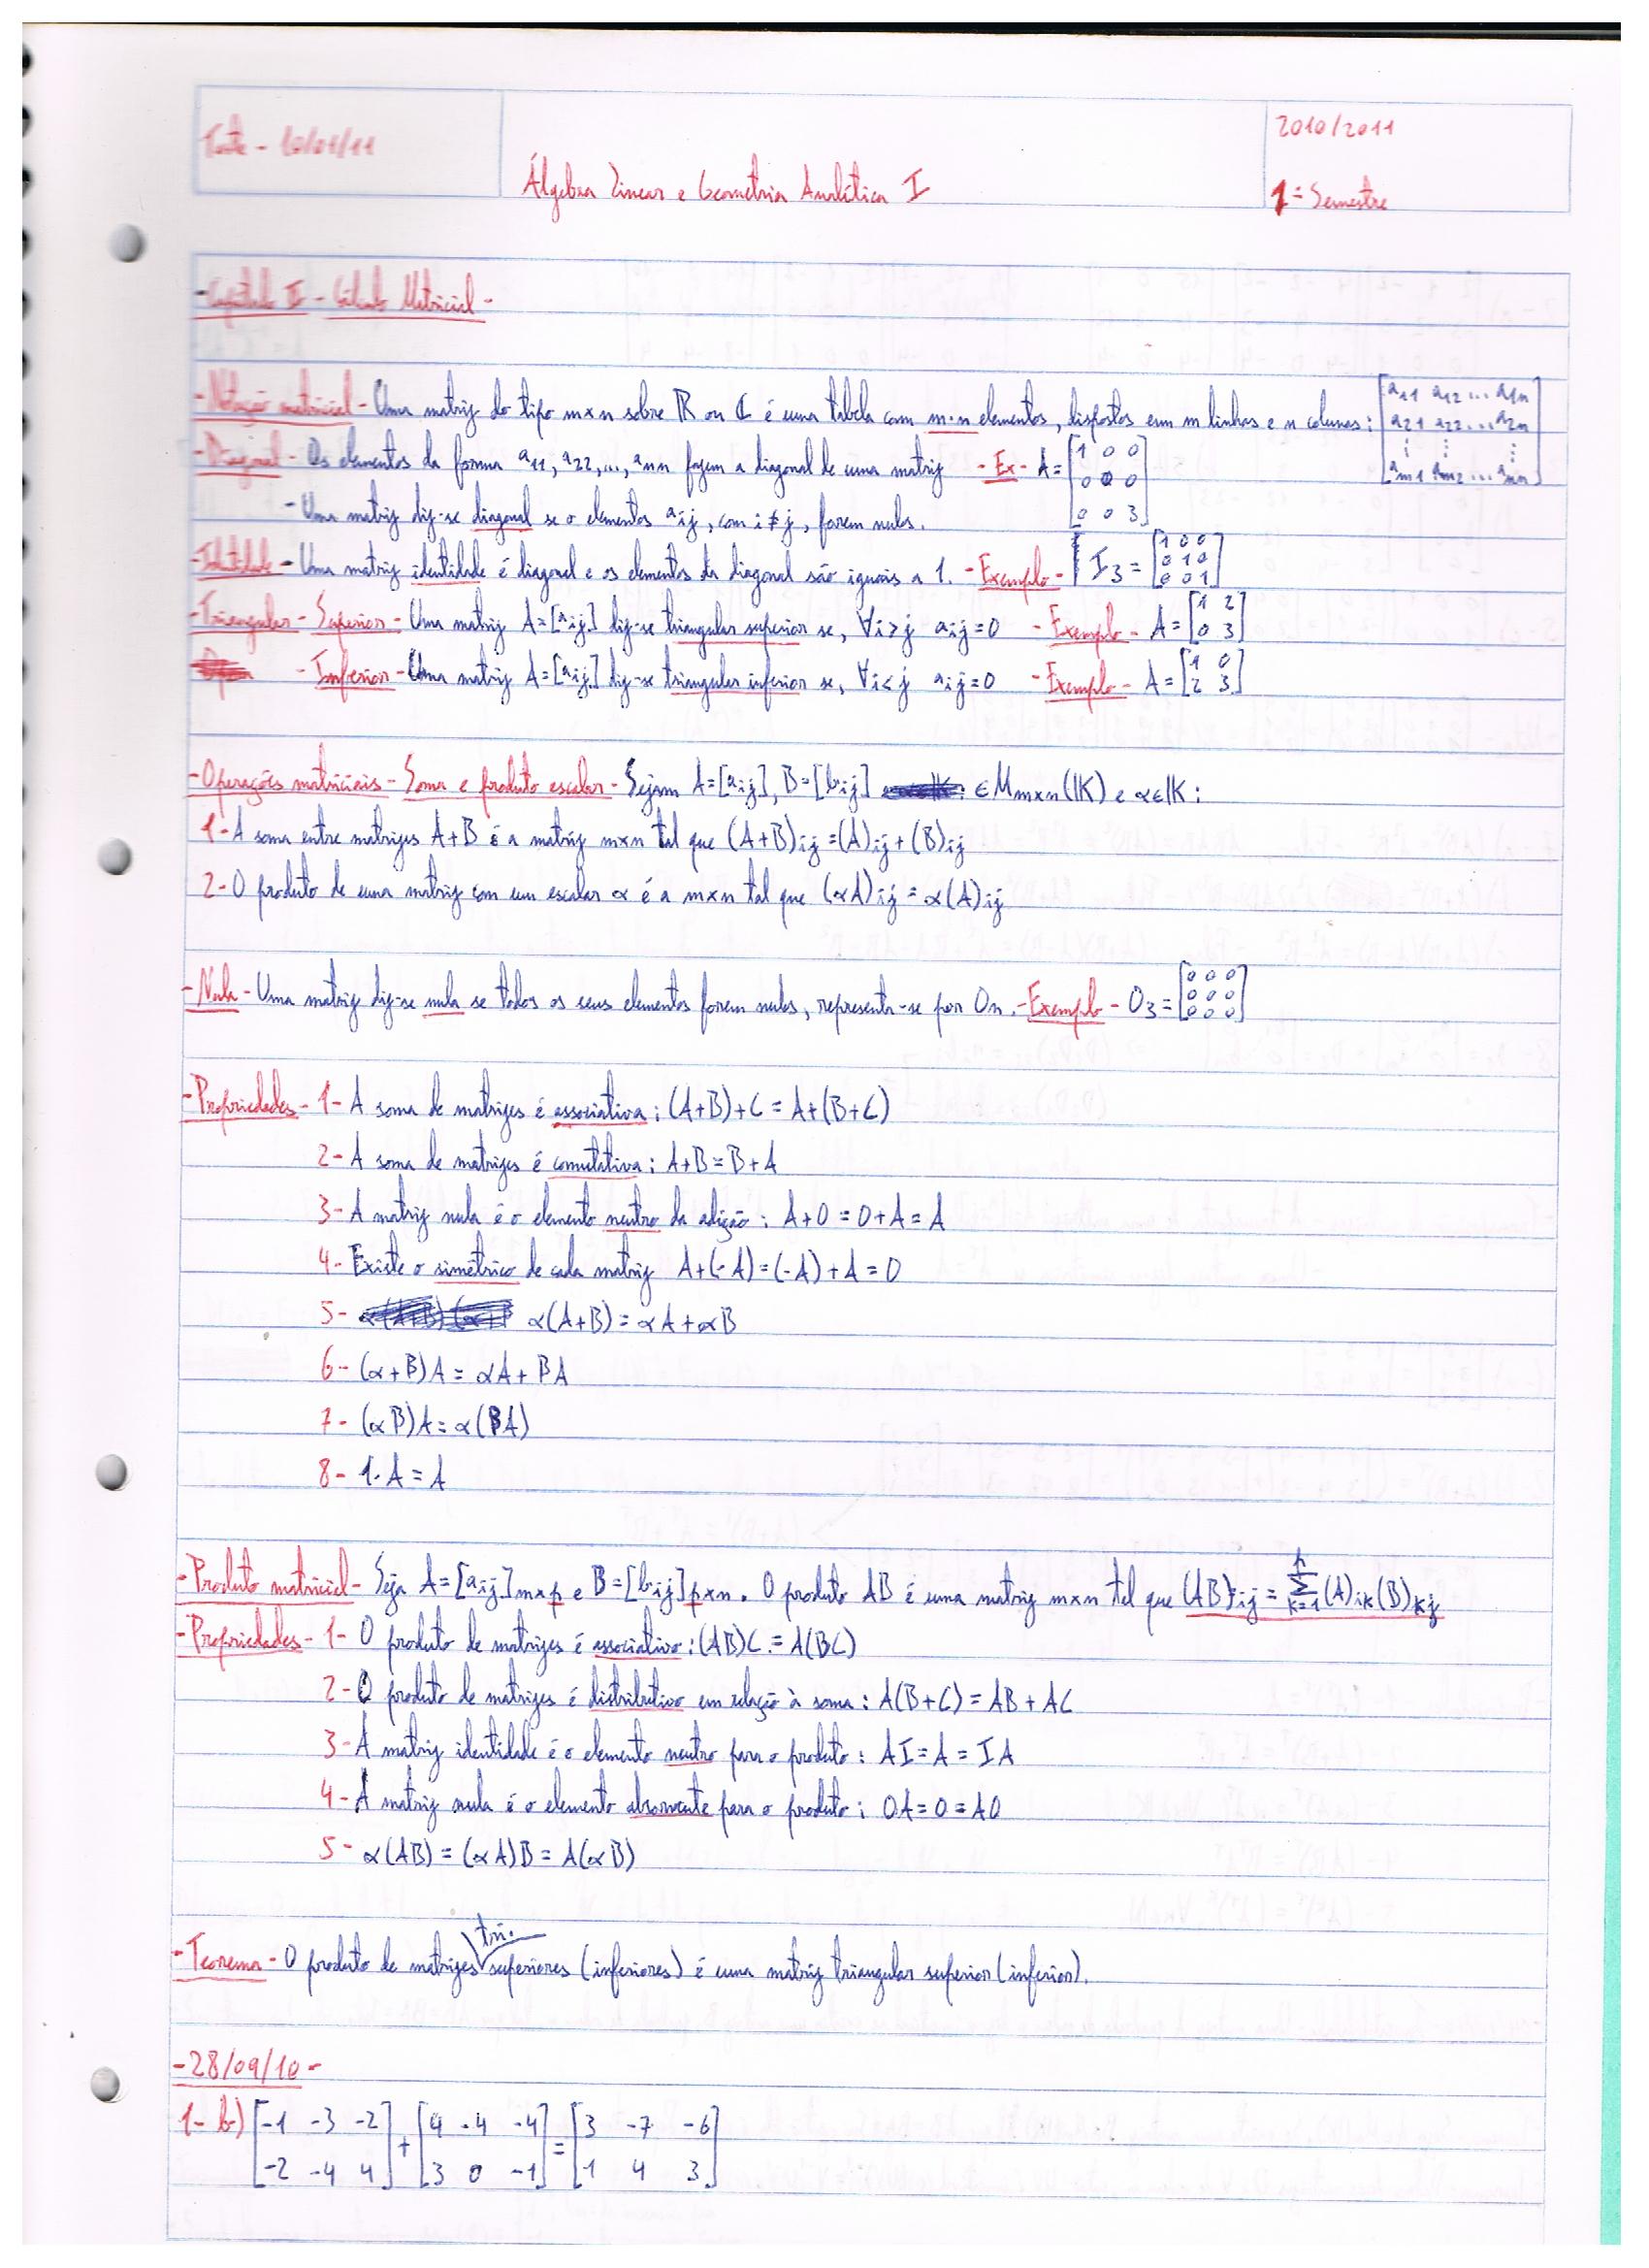 Teste - 10/01/11
Álgebra Linear e Geometria Analítica I
2010/2011
1º Semestre
- Capítulo II - Cálculo Matricial -
- Notação matricial - Uma matriz do tipo m×n sobre ℝ ou ℂ é uma tabela com m·n elementos, dispostos em m linhas e n colunas: [a11 a12 ... a1n; a21 a22 ... a2n; ⋮ ⋮ ⋮; am1 am2 ... amn]
- Diagonal - Os elementos da forma a11, a22, ..., ann fazem a diagonal de uma matriz - Ex - A = [1 0 0; 0 0 0; 0 0 3]
- Uma matriz diz-se diagonal se o elementos aij, com i ≠ j, forem nulos.
- Identidade - Uma matriz identidade é diagonal e os elementos da diagonal são iguais a 1. - Exemplo - I3 = [1 0 0; 0 1 0; 0 0 1]
- Triangular - Superior - Uma matriz A=[aij] diz-se triangular superior se, ∀i>j aij=0 - Exemplo - A = [1 2; 0 3]
- Inferior - Uma matriz A=[aij] diz-se triangular inferior se, ∀i<j aij=0 - Exemplo - A = [1 0; 2 3]
- Operações matriciais - Soma e produto escalar - Sejam A=[aij], B=[bij] ∈ Mm×n(𝕂) e α∈𝕂:
1 - A soma entre matrizes A+B é a matriz m×n tal que (A+B)ij = (A)ij + (B)ij
2 - O produto de uma matriz com um escalar α é a m×n tal que (αA)ij = α(A)ij
- Nula - Uma matriz diz-se nula se todos os seus elementos forem nulos, representa-se por On. - Exemplo - O3 = [0 0 0; 0 0 0; 0 0 0]
- Propriedades - 1 - A soma de matrizes é associativa: (A+B)+C = A+(B+C)
2 - A soma de matrizes é comutativa: A+B = B+A
3 - A matriz nula é o elemento neutro da adição: A+O = O+A = A
4 - Existe o simétrico de cada matriz A+(-A) = (-A)+A = O
5 - α(A+B) = αA + αB
6 - (α+β)A = αA + βA
7 - (αβ)A = α(βA)
8 - 1·A = A
- Produto matricial - Seja A=[aij]m×p e B=[bij]p×n. O produto AB é uma matriz m×n tal que (AB)ij = Σ_{k=1}^{p} (A)ik (B)kj
- Propriedades - 1 - O produto de matrizes é associativo: (AB)C = A(BC)
2 - O produto de matrizes é distributivo em relação à soma: A(B+C) = AB + AC
3 - A matriz identidade é o elemento neutro para o produto: AI = A = IA
4 - A matriz nula é o elemento absorvente para o produto: OA = O = AO
5 - α(AB) = (αA)B = A(αB)
- Teorema - O produto de matrizes tri. superiores (inferiores) é uma matriz triangular superior (inferior).
- 28/09/10 -
1 - b) [-1 -3 -2; -2 -4 4] + [4 -4 -4; 3 0 -1] = [3 -7 -6; 1 4 3]